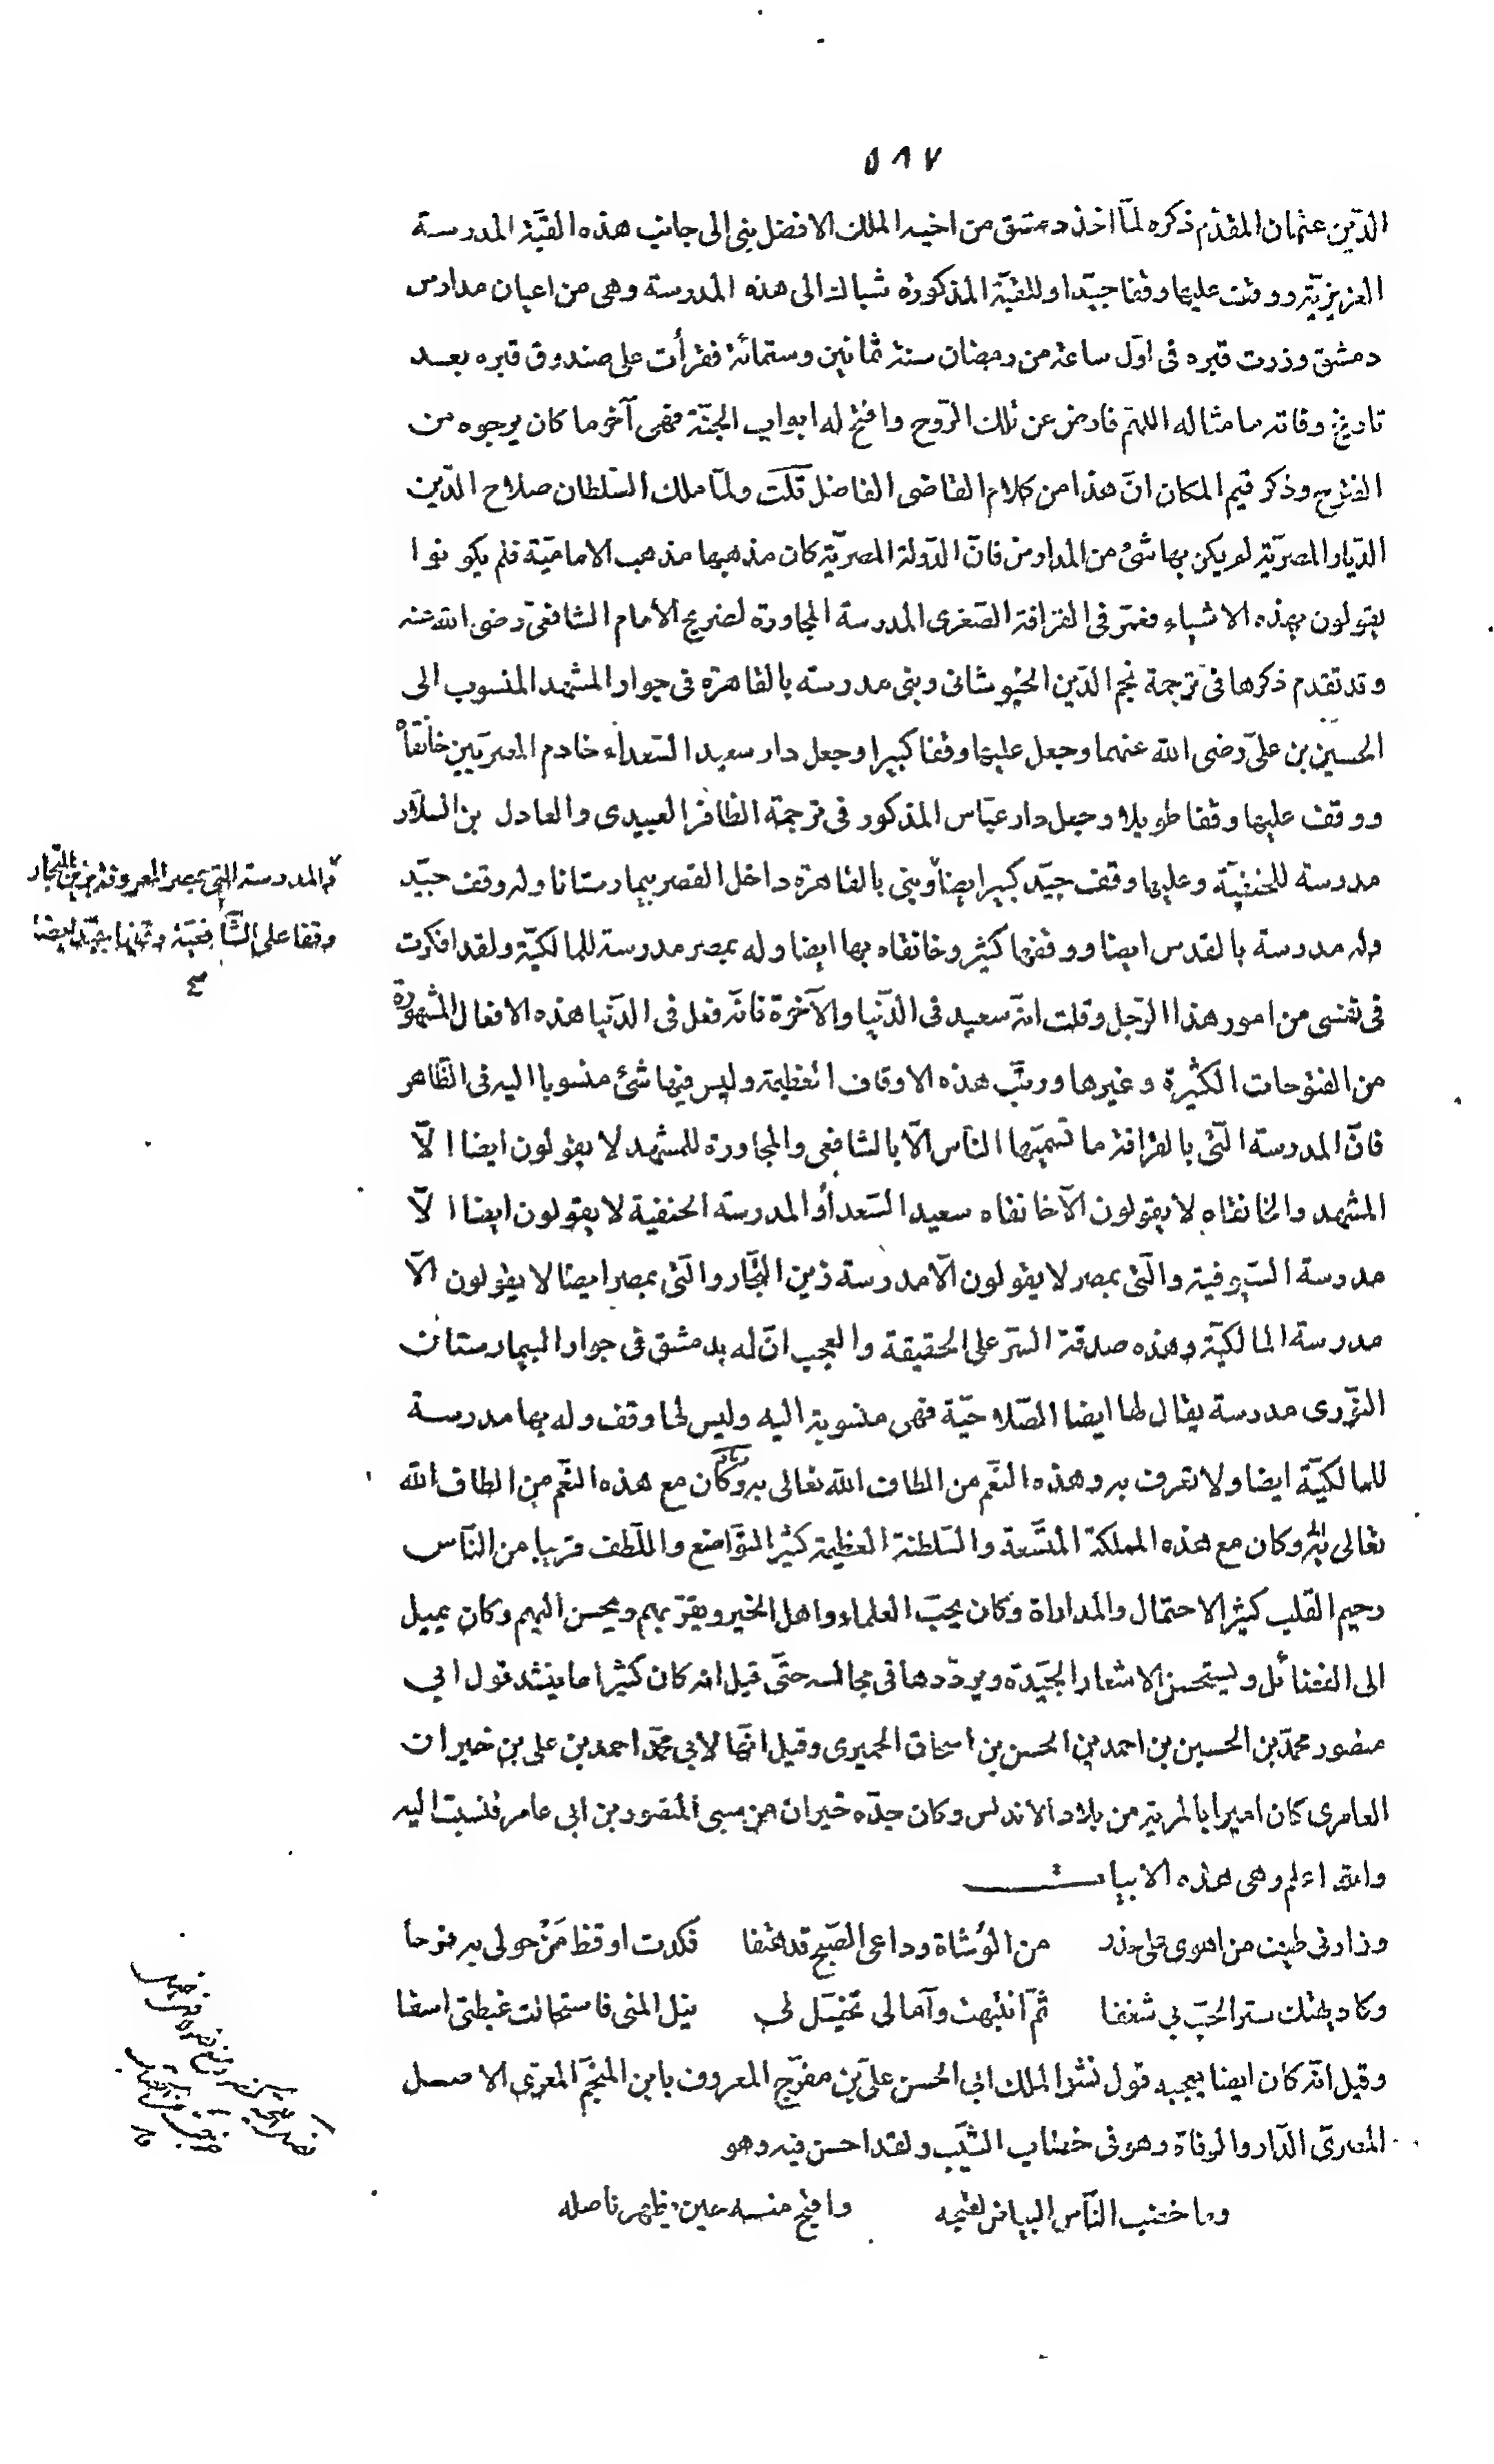 ٥٨٧
الدّين عثمان المقدّم ذكره لمّا اخذ دمشق من اخيه الملك الافضل بنى الى جانب هذه القبّة المدرسة
العزيزيّة ووقف عليها وقفا جيّدا وللقبّة المذكورة شباك الى هذه المدرسة وهى من اعيان مدارس
دمشق وزرت قبره فى اوّل ساعة من رمضان سنة ثمانين وستمائة فقرأت على صندوق قبره بعد
تاريخ وفاته ما مثاله اللهمّ فارض عن تلك الرّوح وافتح له ابواب الجنّة فهى آخر ما كان يرجوه من
الفتوح وذكر قيم المكان انّ هذا من كلام القاضى الفاضل قلت ولمّا ملك السّلطان صلاح الدّين
الدّيار المصريّة لم يكن بها شئ من المدارس فانّ الدّولة المصريّة كان مذهبها مذهب الاماميّة فلم يكونوا
يقولون بهذه الاشياء فعمّر فى القرافة الصّغرى المدرسة المجاورة لضريح الامام الشافعىّ رضى الله عنه
وقد تقدم ذكرها فى ترجمة نجم الدّين الخبوشانى وبنى مدرسة بالقاهرة فى جوار المشهد المنسوب الى
الحسين بن علىّ رضى الله عنهما وجعل عليها وقفا كبيرا وجعل دار سعيد السّعداء خادم المصريّين خانقاه
ووقف عليها وقفا طويلا وجعل دار عبّاس المذكور فى ترجمة الظافر العبيدى والعادل بن السلّار
مدرسة للحنفيّة وعليها وقف جيّد كبير ايضا وبنى بالقاهرة داخل القصر بيمارستانا وله وقف جيّد
وله مدرسة بالقدس ايضا ووقفها كثير وخانقاه بها ايضا وله بمصر مدرسة للمالكيّة ولقد افكرت
فى نفسى من امور هذا الرّجل وقلت انّه سعيد فى الدّنيا والآخرة فانّه فعل فى الدّنيا هذه الافعال المشهورة
من الفتوحات الكثيرة وغيرها ورتّب هذه الاوقاف العظيمة وليس فيها شئ منسوبا اليه فى الظّاهر
فانّ المدرسة الّتى بالقرافة ما تسمّيها النّاس الّا بالشافعى والمجاورة للمشهد لا يقولون ايضا الّا
المشهد والخانقاه لا يقولون الّا خانقاه سعيد السّعداء والمدرسة الحنفية لا يقولون ايضا الّا
مدرسة السّيوفية والّتى بمصر لا يقولون الّا مدرسة زين التجّار والّتى بمصر ايضا لا يقولون الّا
مدرسة المالكيّة وهذه صدقة السّرّ على الحقيقة والعجب انّ له بدمشق فى جوار البيمارستان
النّورى مدرسة يقال لها ايضا الصّلاحيّة فهى منسوبة اليه وليس لها وقف وله بها مدرسة
للمالكيّة ايضا ولا تعرف به وهذه النعم من الطاف الله تعالى به وكان مع هذه النعم من الطاف الله
تعالى به وكان مع هذه المملكة المتّسعة والسّلطنة العظيمة كثير التّواضع واللّطف قريبا من النّاس
رحيم القلب كثير الاحتمال والمداراة وكان يحبّ العلماء واهل الخير ويقرّبهم ويحسن اليهم وكان يميل
الى الفضائل ويستحسن الاشعار الجيّدة ويردّدها فى مجالسه حتّى قيل انه كان كثيرا ما ينشد قول ابى
منصور محمّد بن الحسين بن احمد بن الحسن بن اسحاق الحميرى وقيل انّها لابى محمّد احمد بن على بن خيران
العامرى كان اميرا بالمرية من بلاد الاندلس وكان جدّه خيران من سبى المنصور بن ابى عامر فنسب اليه
والله اعلم وهى هذه الابيات
وزارنى طيف من اهوى على حذر من الوُشاة وداعى الصّبح قد هتفا فكدت اوقظ مَنْ حولى به فرحا
وكاد يهتك ستر الحبّ بى شغفا ثمّ انتبهت وآمالى تخيّل لى نيل المنى فاستحالت غبطتى اسفا
وقيل انّه كان ايضا يعجبه قول نشو الملك ابى الحسن علىّ بن مفرّج المعروف بابن المنجّم المعرّى الاصل
المصرىّ الدّار والوفاة وهو فى خضاب الشّيب ولقد احسن فيه وهو
وما خضب النّاس البياض لقبحه واقبح منه حين يظهر ناصله
والمدرسة الّتى بمصر المعروفة بزين التجّار
وقفا على الشّافعيّة وقفها جيّد ايضا